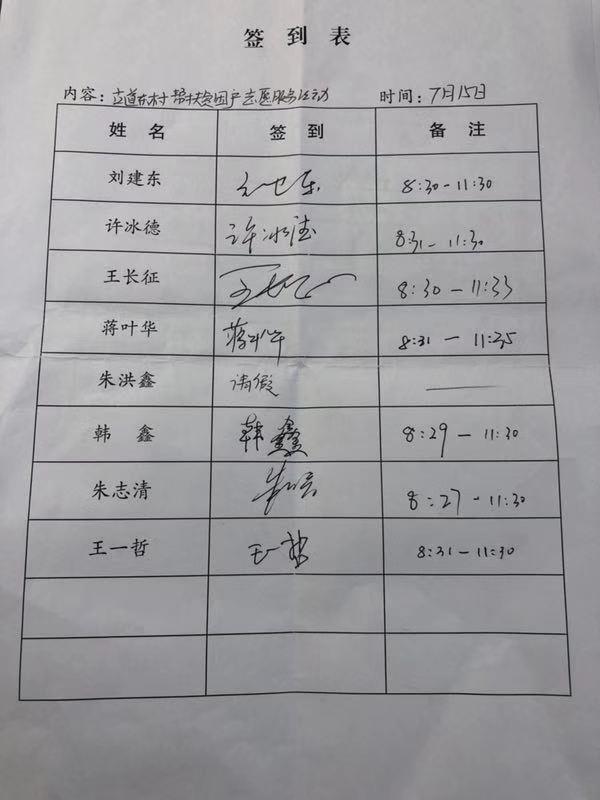 签到表
内容：古道东村帮扶贫困户志愿服务活动 时间：7月15日
姓名 签到 备注
刘建东 刘建东 8:30-11:30
许冰德 许冰德 8:31-11:30
王长征 王长征 8:30-11:33
蒋叶华 蒋叶华 8:31-11:35
朱洪鑫 请假 ——
韩鑫 韩鑫 8:29-11:30
朱志清 8:27-11:30
王一哲 王一哲 8:31-11:30